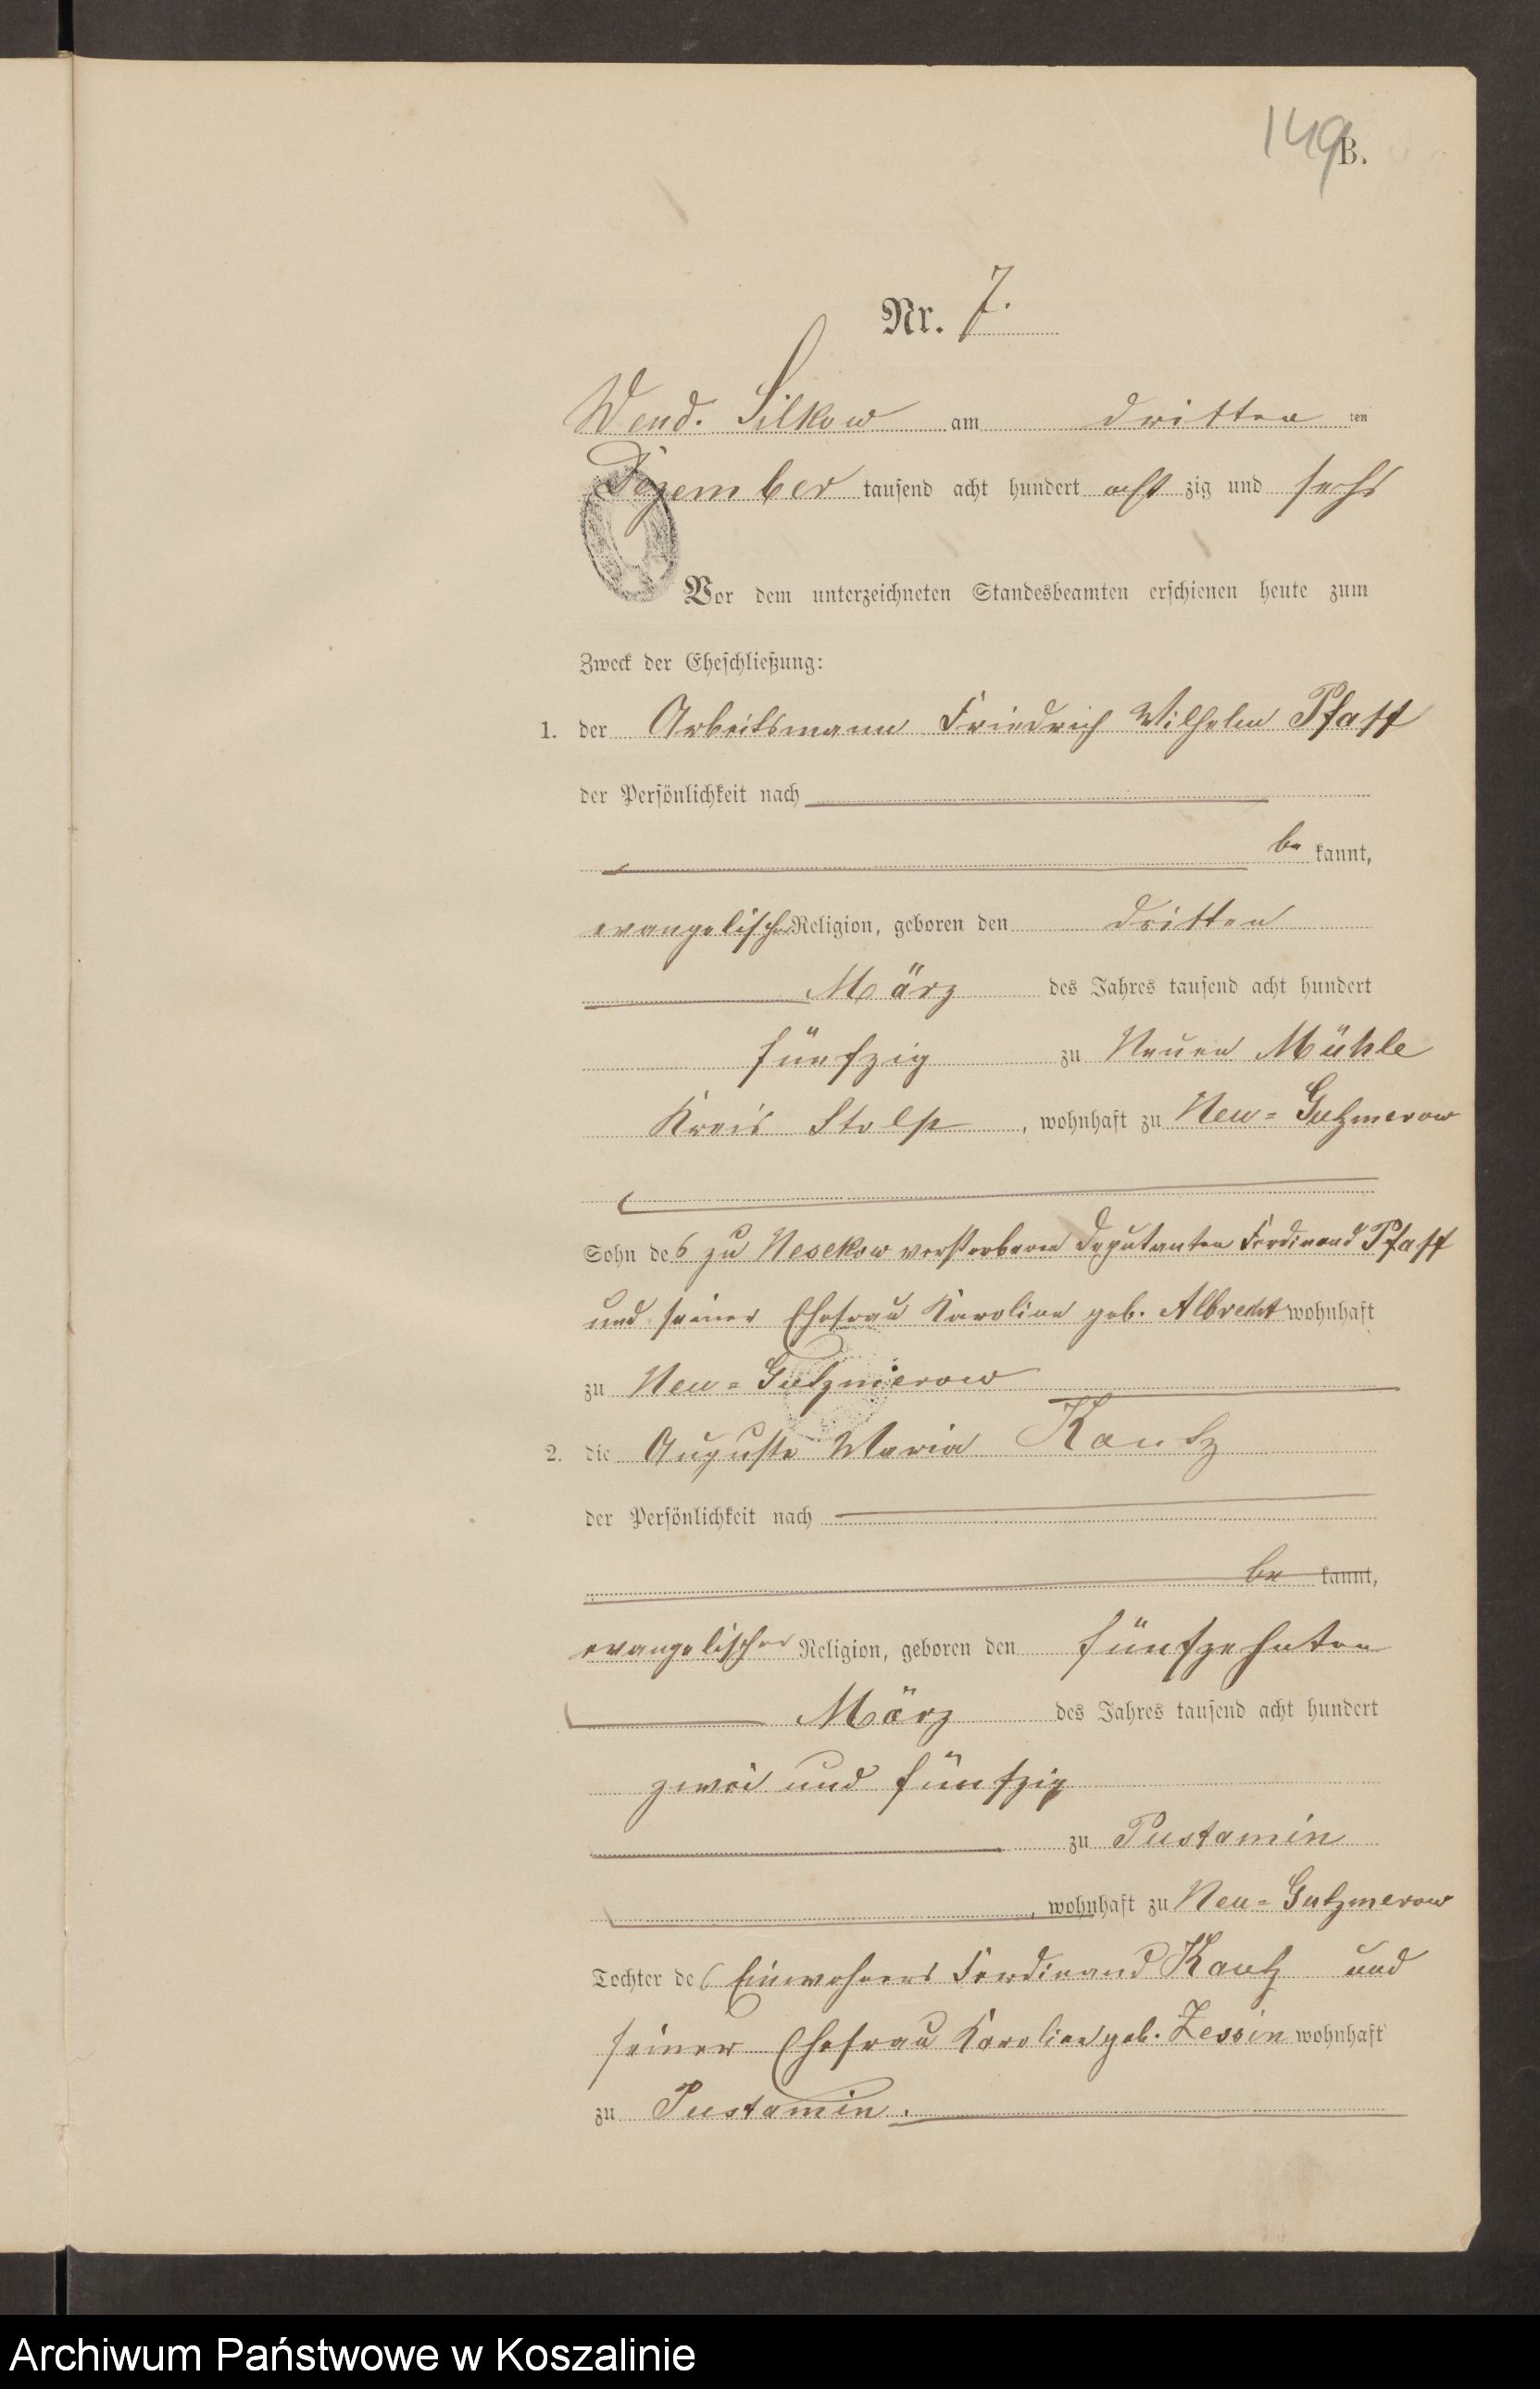 149
B.
Nr. 7.
Wend. Silkow am dritten ten
Dezember tausend acht hundert acht zig und sechs
Vor dem unterzeichneten Standesbeamten erschienen heute zum
Zweck der Eheschließung:
1. der Arbeitsmann Friedrich Wilhelm Pfaff
der Persönlichkeit nach
be kannt,
evangelischer Religion, geboren den dritten
März des Jahres tausend acht hundert
fünfzig zu Neuen Mühle
Kreis Stolp, wohnhaft zu Neu-Gutzmerow
Sohn des zu Nesekow verstorbenen Deputanten Ferdinand Pfaff
und seiner Ehefrau Karoline geb. Albrecht wohnhaft
zu Neu-Gutzmerow
2. die Auguste Maria Kautz
der Persönlichkeit nach
be kannt,
evangelischer Religion, geboren den fünfzehnten
März des Jahres tausend acht hundert
zwei und fünfzig
zu Pustamin
, wohnhaft zu Neu-Gutzmerow
Tochter des Einwohners Ferdinand Kautz und
seiner Ehefrau Karoline geb. Zessin wohnhaft
zu Pustamin.
Archiwum Państwowe w Koszalinie